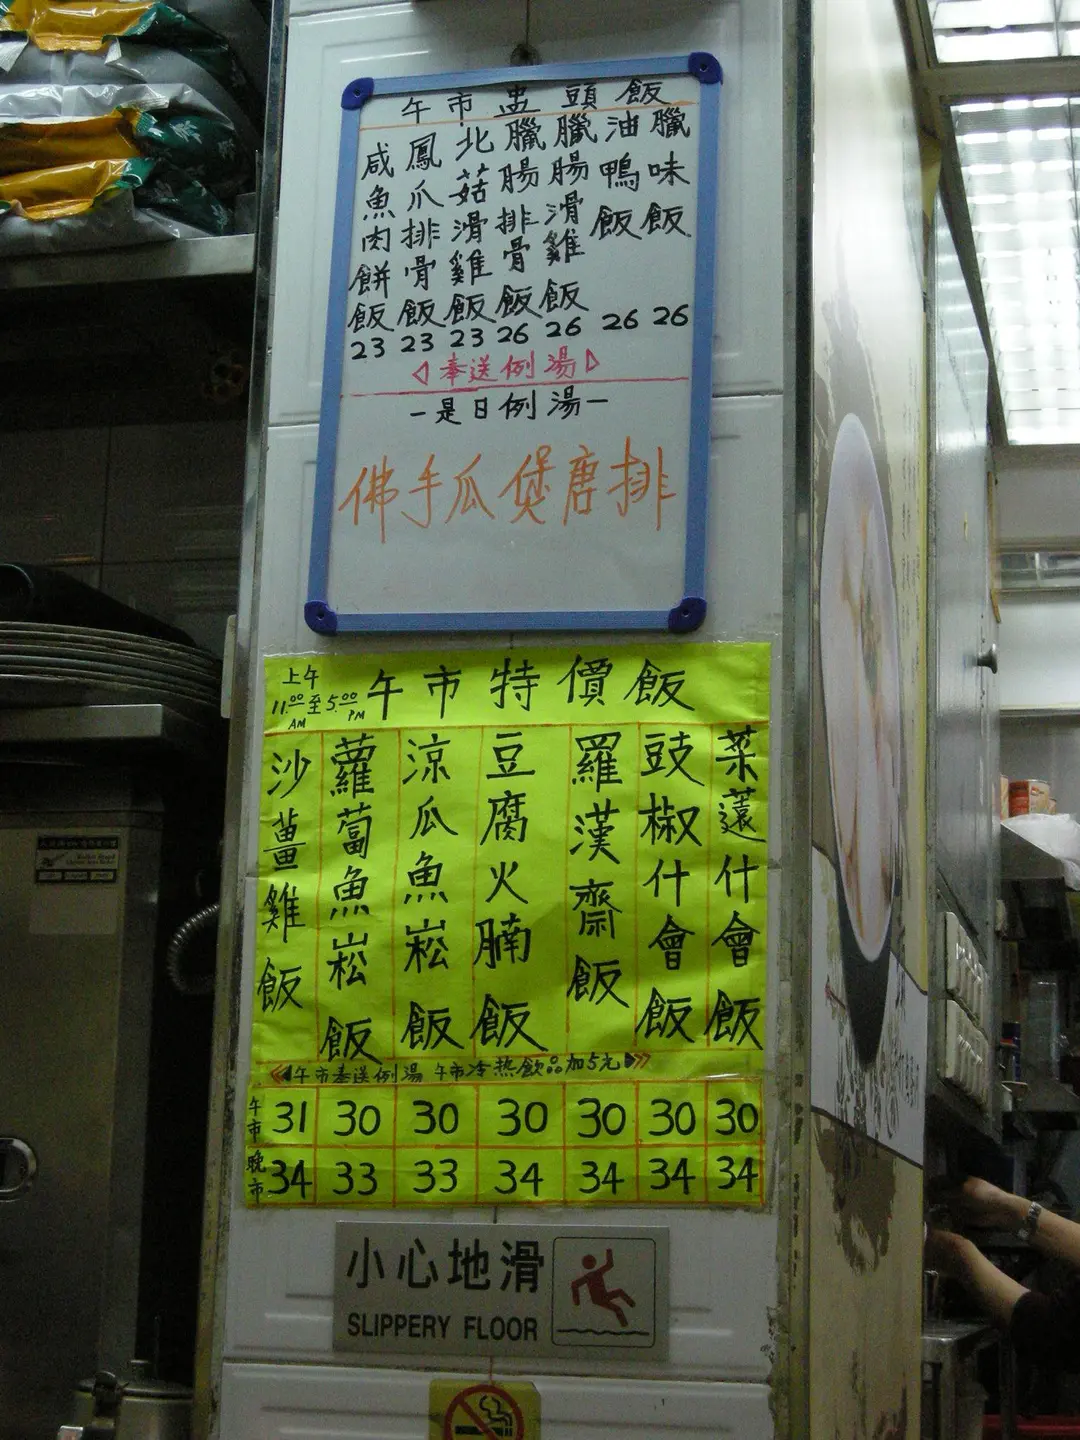 午市盅頭飯
臘味飯 26
油鴨飯 26
臘腸滑雞飯 26
臘腸排骨飯 26
北菇滑雞飯 23
鳳爪排骨飯 23
咸魚肉餅飯 23
奉送例湯
-是日例湯-
佛手瓜煲唐排
上午
11.00至5.00
AM PM
午市特價飯
菜薳什會飯
豉椒什會飯
羅漢齋飯
豆腐火腩飯
涼瓜魚崧飯
蘿蔔魚崧飯
沙薑雞飯
午市奉送例湯 午市冷热飲品加5元
午市 31 30 30 30 30 30 30
晚市 34 33 33 34 34 34 34
小心地滑
SLIPPERY FLOOR